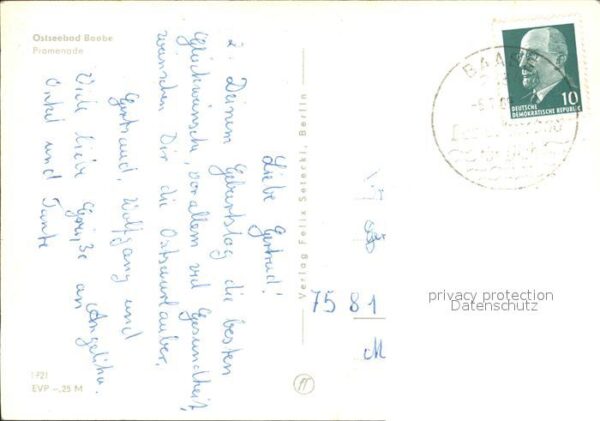 Ostseebad Baabe
Promenade
Liebe Gertrud!
z. Deinem Geburtstag die besten
Glückwünsche, vor allem viel Gesundheit,
wünschen Dir die Ostseeurlauber.
Gertraud, Wolfgang und
Angelika.
Viele liebe Grüße an
Onkel und Tante
Verlag Felix Setecki, Berlin
BAABE
10
DEUTSCHE
DEMOKRATISCHE REPUBLIK
7581
M
privacy protection
Datenschutz
EVP -,25 M